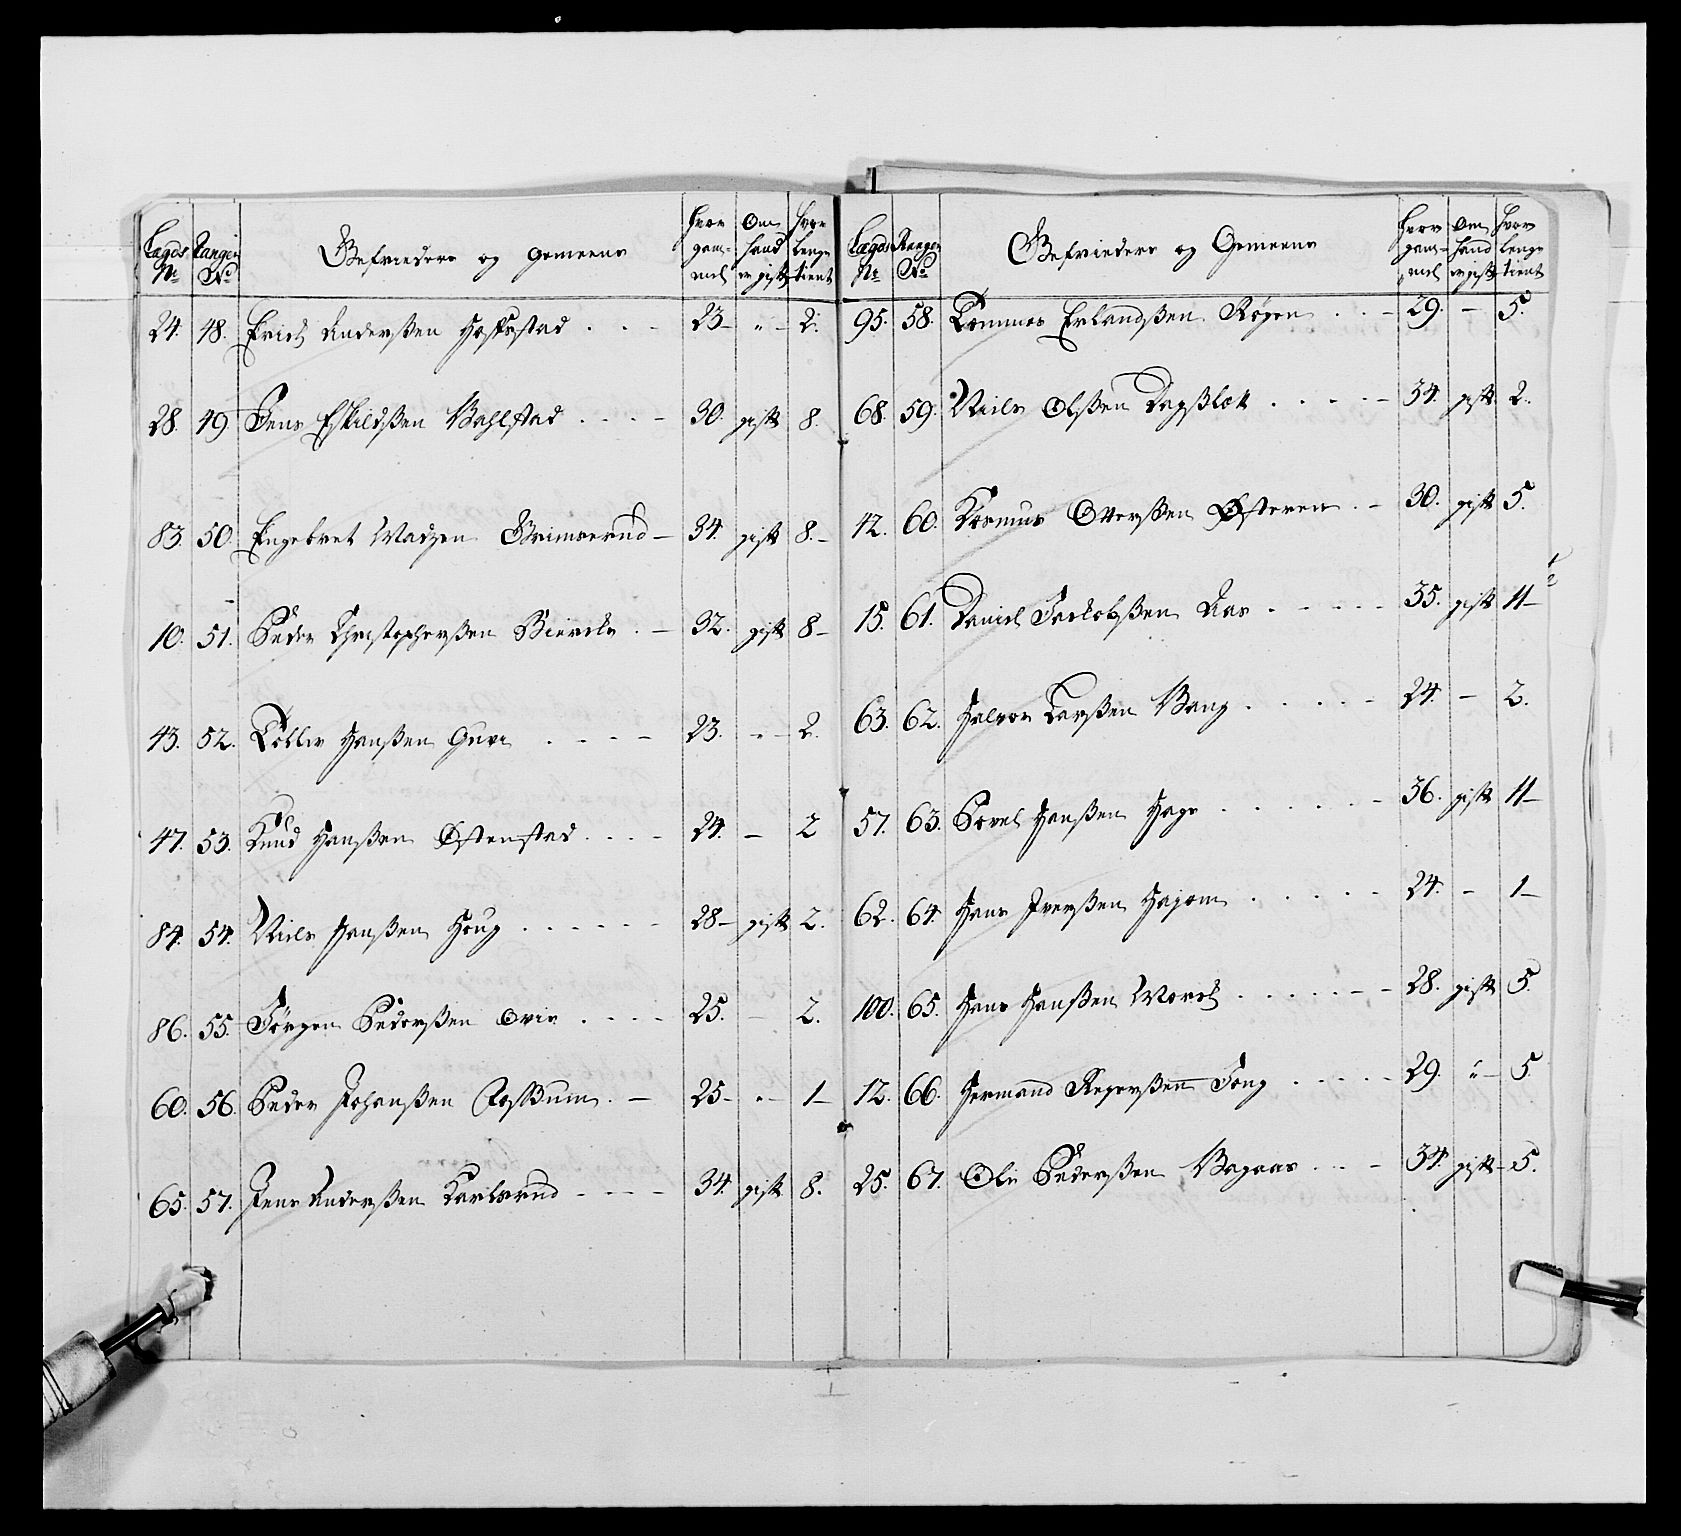 Lægds No Rangen No Gefrieders og gemeene Hvor gam-mel Om hand er gift Hvor lenge tient
24. 48. Erich Anderßen Hofsstad . . . 23 – " – 2.
28. 49 Jens Eskildßen Wahlstad . . . . 30. gift 8.
83. 50. Engebret Madzen Grimserud – 34. gift 8. –
10. 51. Peder Christopherßen Bierche . – 32. gift 8 –
43. 52. Tollev Hanßen Gui . . . . 23. " – 2.
47. 53. Knud Hanßen Østenstad . . . . 24. – 2
84. 54. Niels Hanßen Houg . . . . . . 28 – gift 2.
86. 55. Jörgen Pederßen Ovie . . . . 25. – 2.
60. 56. Peder Johanßen Foßum . – 25 – " – 1 –
65. 57. Jens Anderßen Karlsrud . . . . 34. gift 8.
Lægds No Rangen No Gefrieders og Gemeene Hvor gam-mel Om hand er gift Hvor lenge tient
95. 58. Tommes Erlandßen Røgen . . – 29. – 5.
68. 59. Niels Olßen Dagßlet . . . . . 34. gift 2.
42. 60. Rasmus Olverßen Østeren . – 30. gift 5.
15. 61. Daniel Jackobßen Aas . . . . . 35. gift 11 – 1/2
63. 62. Halvor Larßen Wang . . . . . 24. – 2.
57. 63. Povel Hanßen Hage . . . . . . 36. gift 11 –
62. 64. Hans Iverßen Hajom . . . . . 24. – 1 –
100. 65. Hans Hanßen Morch . . . . . . 28. gift 5.
12. 66. Hermand Regerßen Tong . . . . . 29. " – 5
25. 67. Ole Pederßen Bagaas . . . – 34. gift – 5.